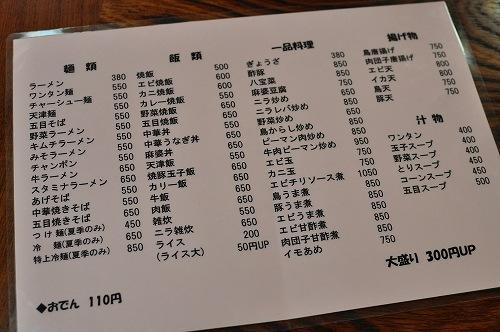 麺類
ラーメン 380
ワンタン麺 550
チャーシュー麺 550
天津麺 550
五目そば 550
野菜ラーメン 550
キムチラーメン 550
みそラーメン 550
チャンポン 550
牛ラーメン 650
スタミナラーメン 650
あげそば 650
中華焼きそば 650
五目焼きそば 650
つけ麺(夏季のみ) 450
冷 麺(夏季のみ) 650
特上冷麺(夏季のみ) 850
◆おでん 110円
飯類
焼飯 500
エビ焼飯 600
カニ焼飯 600
カレー焼飯 550
野菜焼飯
五目焼飯
中華丼
中華うなぎ丼 650
麻婆丼
天津飯
焼豚玉子飯 650
カリー飯 650
牛飯 650
肉飯 650
雑炊 650
ニラ雑炊 650
ライス 200
(ライス大) 50円UP
一品料理
ぎょうざ 380
酢豚 850
八宝菜 750
麻婆豆腐 650
ニラ炒め 650
ニラレバ炒め
野菜炒め
鳥からし炒め
ピーマン肉炒め
牛肉ピーマン炒め
エビ玉
カニ玉
エビチリソース煮 850
鳥うま煮 850
豚うま煮 850
エビうま煮 850
エビ甘酢煮 850
肉団子甘酢煮 850
イモあめ 750
揚げ物
鳥唐揚げ 750
肉団子唐揚げ 750
エビ天 800
イカ天 750
鳥天 750
豚天 800
汁物
ワンタン 400
玉子スープ 400
野菜スープ 400
とりスープ 450
コーンスープ 450
五目スープ 500
大盛り 300円UP